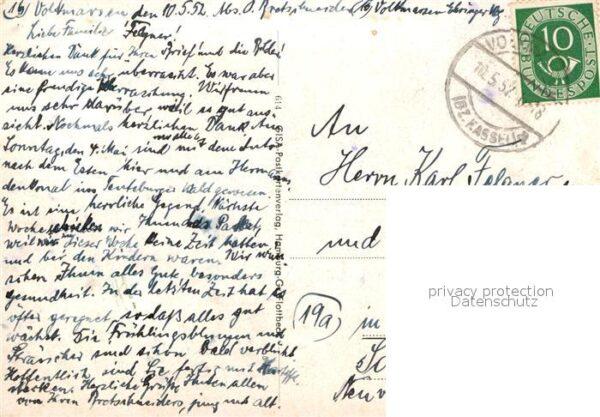 (16) Volkmarsen, den 10.5.52. Abs. O. Brotschneider (16) Volkmarsen Ehringer Weg
Liebe Familie Felgner!
Herzlichen Dank für Ihren Brief und die Bilder
Es kam uns sehr überrascht. Es war aber
eine freudige Überraschung. Wir freuen
uns sehr darüber weil es gut aus-
sieht. Nochmals herzlichen Dank. Am
Sonntag, den 4. Mai sind wir mit dem Auto
nach dem Essen, hier und am Hermann
denkmal im Teutoburger Wald gewesen.
Es ist eine herrliche Gegend. Nächste
Woche schicken wir Ihnen das Paket,
weil wir dieser Woche keine Zeit hatten
und bei den Kindern waren. Wir wün
schen Ihnen alles Gute besonders
Gesundheit. In der letzten Zeit hat es
öfter geregnet, sodaß alles gut
wächst. Die Frühlingsblumen und
Sträucher sind schon bald verblüht.
Hoffentlich sind Sie fertig mit Kartoffel
stecken. Herzliche Grüße Ihnen allen
von Ihren Brotschneiders, jung und alt.
614 GISA-Postkartenverlag, Hamburg-Gr. Flottbek
DEUTSCHE BUNDESPOST
10
10.5.52
(BZ. KASSEL)
An
Herrn Karl Felgner
und
(19a) in
privacy protection
Datenschutz